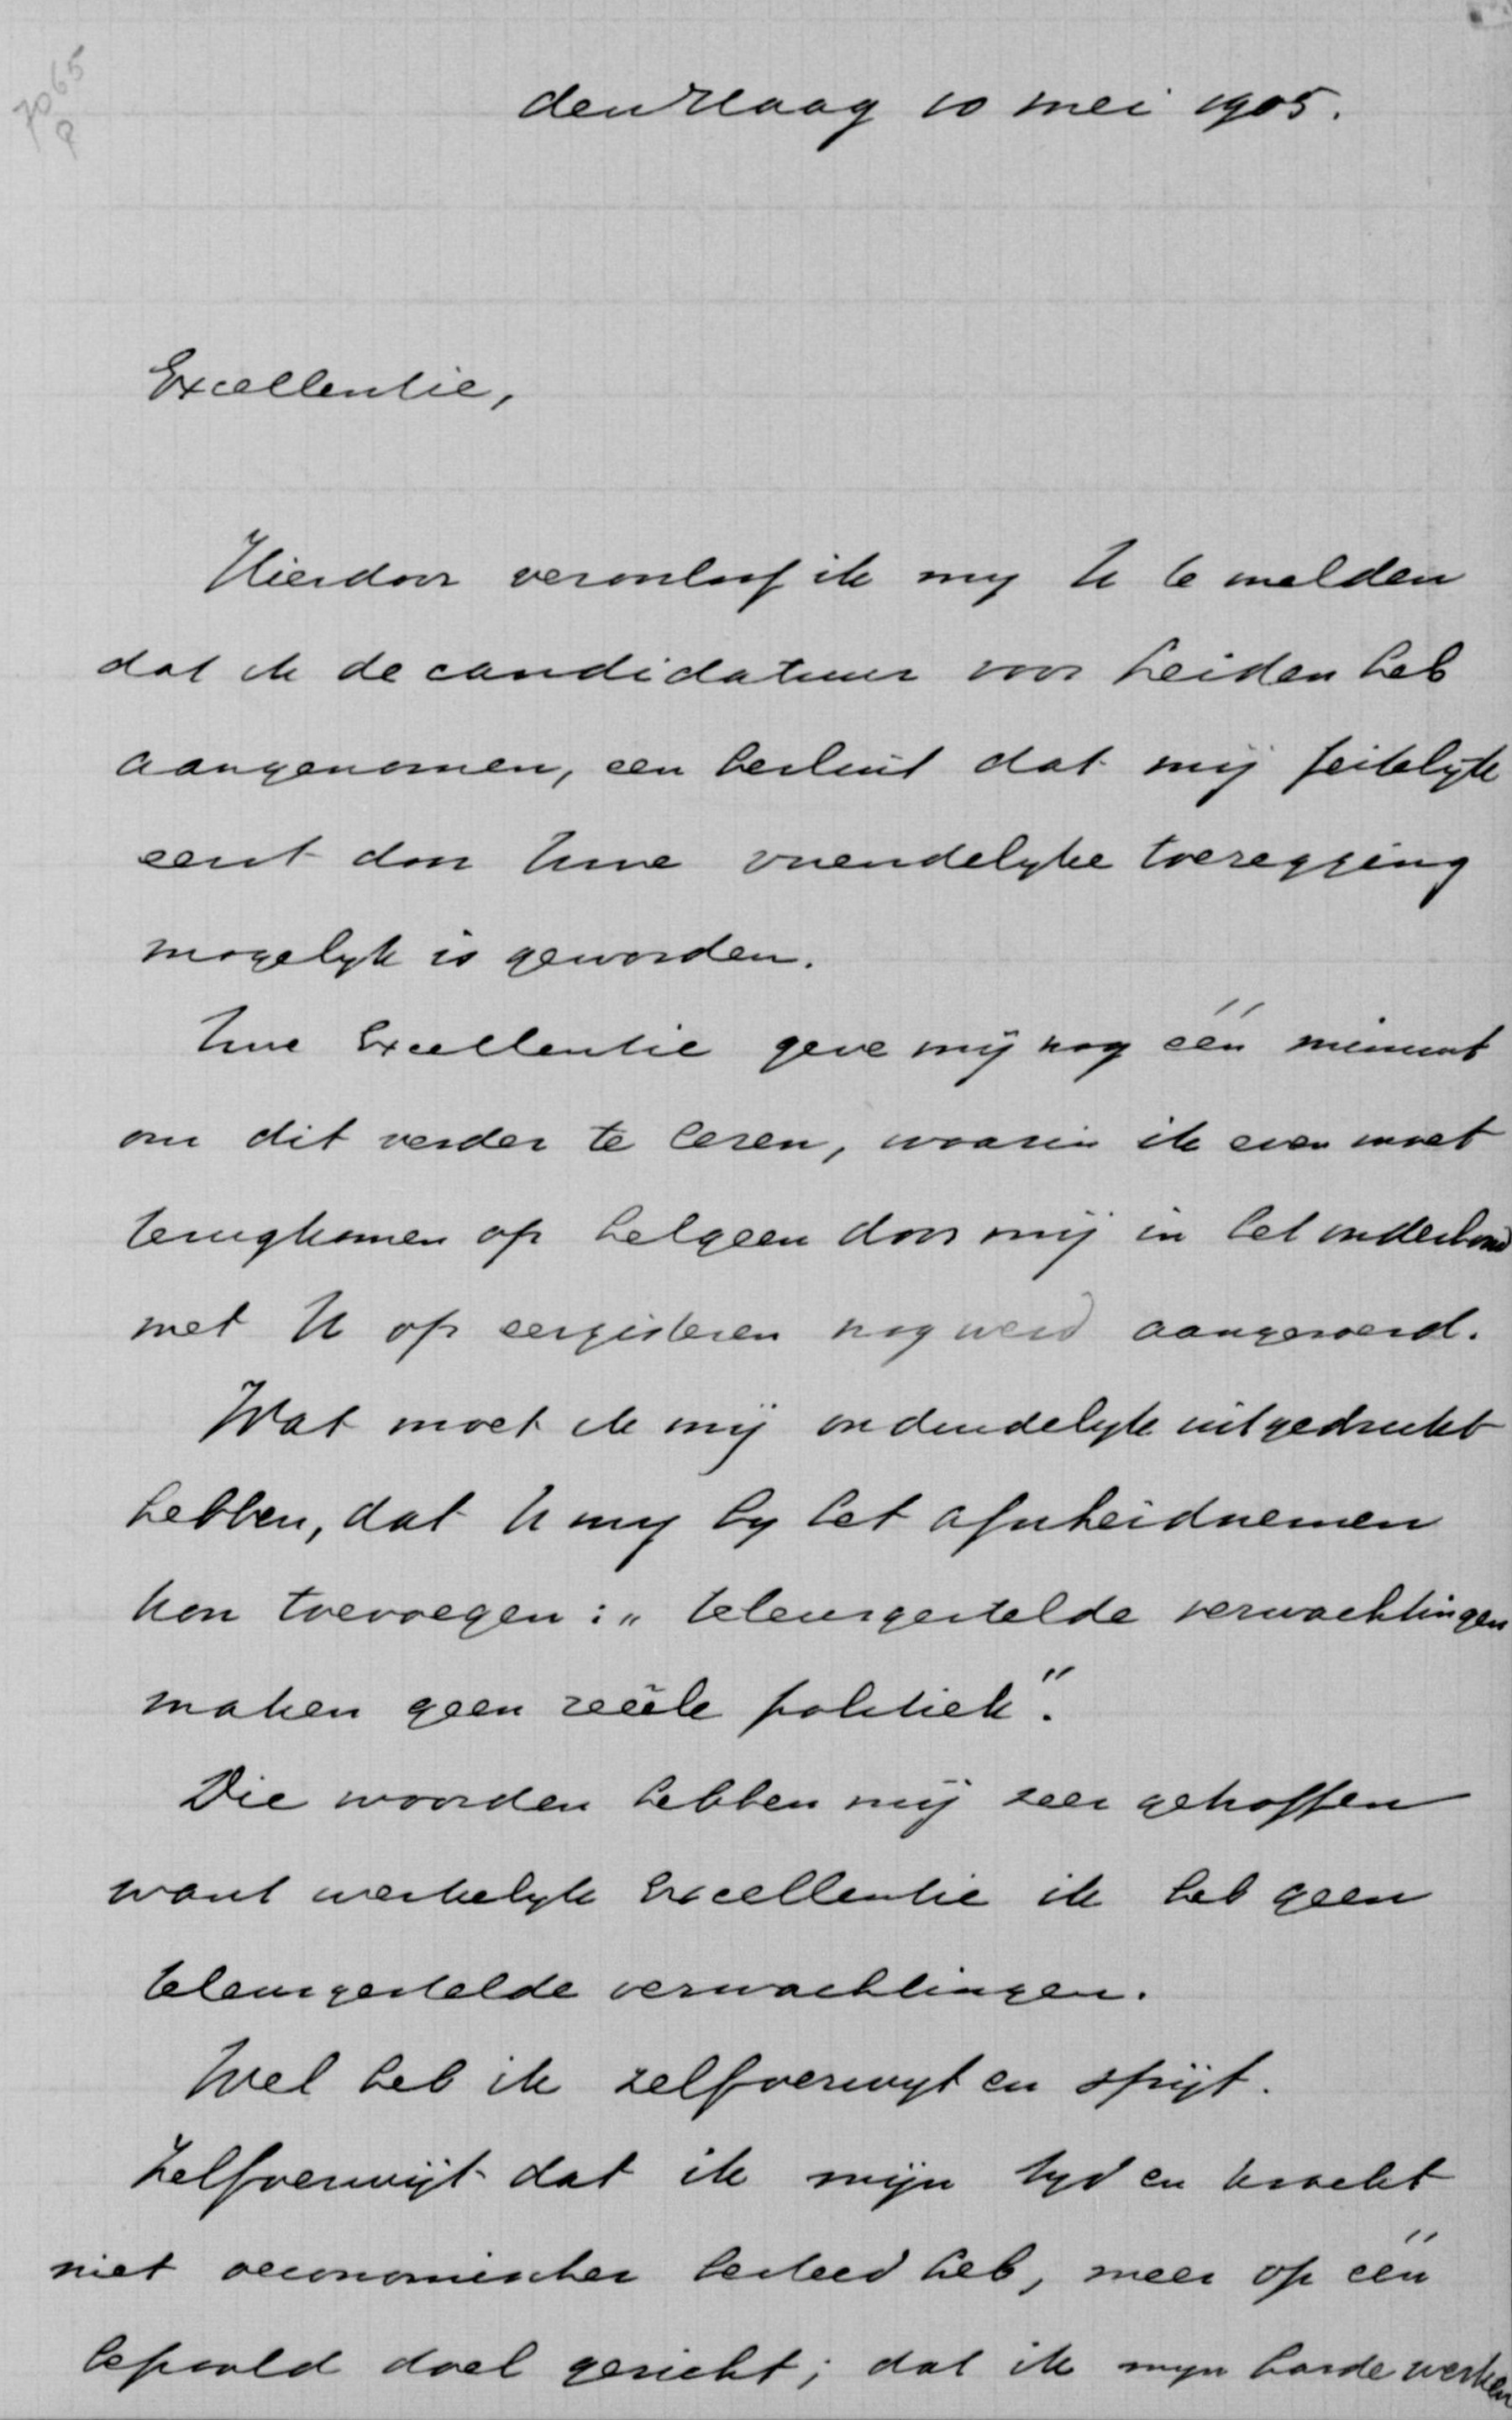 7065
P
den Haag 10 mei 1905.
Excellentie,
Hierdoor veroorloof ik my U te melden
dat ik de candidatuur voor Leiden heb
aangenomen, een besluit dat mij feitelyk
eerst door Uwe vriendelyke toezegging
mogelyk is geworden.
Uwe Excellentie geve mij nog één minuut
om dit verder te lezen, waarin ik even moet
terugkomen op hetgeen door mij in het onderhoud
met U op eergisteren nog werd aangeroerd.
Wat moet ik mij onduidelyk uitgedrukt
hebben, dat U my by het afscheidnemen
kon toevoegen: „teleurgestelde verwachtingen
maken geen reëele politiek".
Die woorden hebben mij zeer getroffen
want werkelyk Excellentie ik heb geen
teleurgestelde verwachtingen.
Wel heb ik zelfverwyt en spijt.
Zelfverwijt dat ik mijn tyd en kracht
niet oeconomischer besteed heb, meer op één
bepaald doel gericht; dat ik myn harde werken